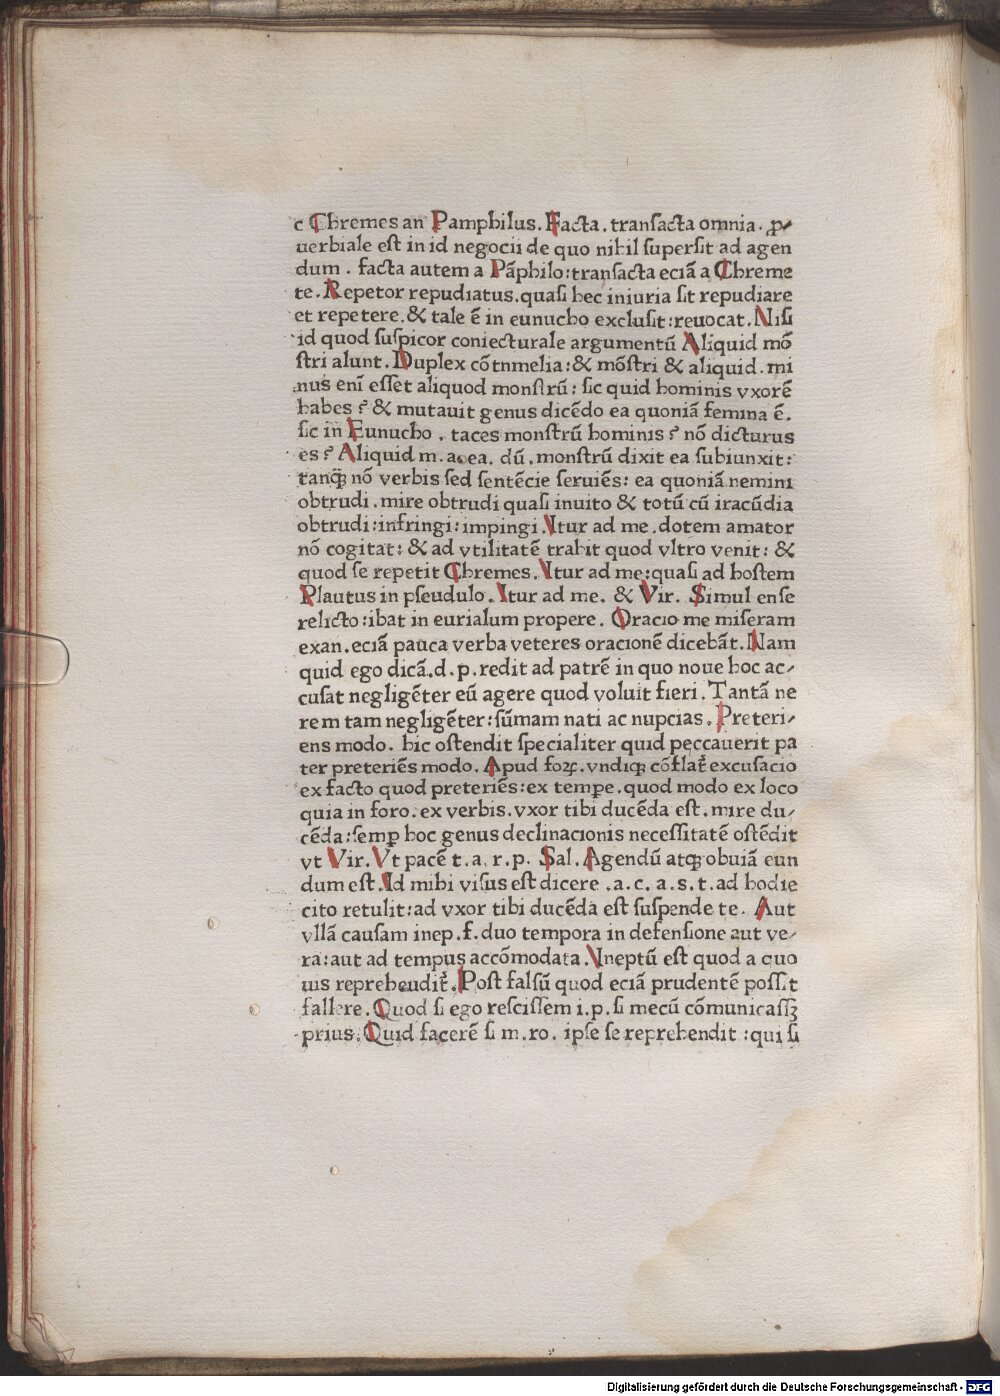 c Chremes an Pamphilus. Facta. transacta omnia. ꝓ-
uerbiale est in id negocii de quo nihil supersit ad agen
dum. facta autem a Pãphilo: transacta eciã a Chreme
te. Repetor repudiatus. quasi hec iniuria sit repudiare
et repetere. & tale ẽ in eunucho exclusit: reuocat. Nisi
id quod suspicor coniecturale argumentũ Aliquid mõ
stri alunt. Duplex cõtnmelia: & mõstri & aliquid. mi
nus eni esset aliquod monstrũ: sic quid hominis vxorẽ
habes ? & mutauit genus dicẽdo ea quoniã femina ẽ.
sic in Eunucho. taces monstrũ hominis ? nõ dicturus
es ? Aliquid m. a. ea. dũ. monstrũ dixit ea subiunxit:
tanꝗ̃ nõ verbis sed sentẽcie seruiẽs: ea quoniã nemini
obtrudi. mire obtrudi quasi inuito & totũ cũ iracũdia
obtrudi: infringi: impingi. Itur ad me. dotem amator
nõ cogitat: & ad vtilitatẽ trahit quod vltro venit: &
quod se repetit Chremes. Itur ad me: quasi ad hostem
Plautus in pseudulo. Itur ad me. & Vir. Simul ense
relicto: ibat in eurialum propere. Oracio me miseram
exan. eciã pauca verba veteres oracionẽ dicebãt. Nam
quid ego dicã. d. p. redit ad patrẽ in quo noue hoc ac-
cusat negligẽter eũ agere quod voluit fieri. Tantã ne
rem tam negligẽter: sũmam nati ac nupcias. Preteri-
ens modo. hic ostendit specialiter quid peccauerit pa
ter preteriẽs modo. Apud foꝝ. vndiqꝫ cõflat᷑ excusacio
ex facto quod preteriẽs: ex tempe. quod modo ex loco
quia in foro. ex verbis. vxor tibi ducẽda est. mire du-
cẽda: semꝑ hoc genus declinacionis necessitatẽ ostẽdit
vt Vir. Vt pacẽ t. a. r. p. Sal. Agendũ atqꝫ obuiã eun
dum est. Id mihi visus est dicere. a. c. a. s. t. ad hodie
cito retulit: ad vxor tibi ducẽda est suspende te. Aut
vllã causam inep. f. duo tempora in defensione aut ve-
ra: aut ad tempus accõmodata. Ineptũ est quod a quo
uis reprehendit᷑. Post falsũ quod eciã prudentẽ possit
fallere. Quod si ego rescissem i. p. si mecũ cõmunicassꝫ
prius. Quid facerẽ si m. ro. ipse se reprehendit: qui si
Digitalisierung gefördert durch die Deutsche Forschungsgemeinschaft - DFG